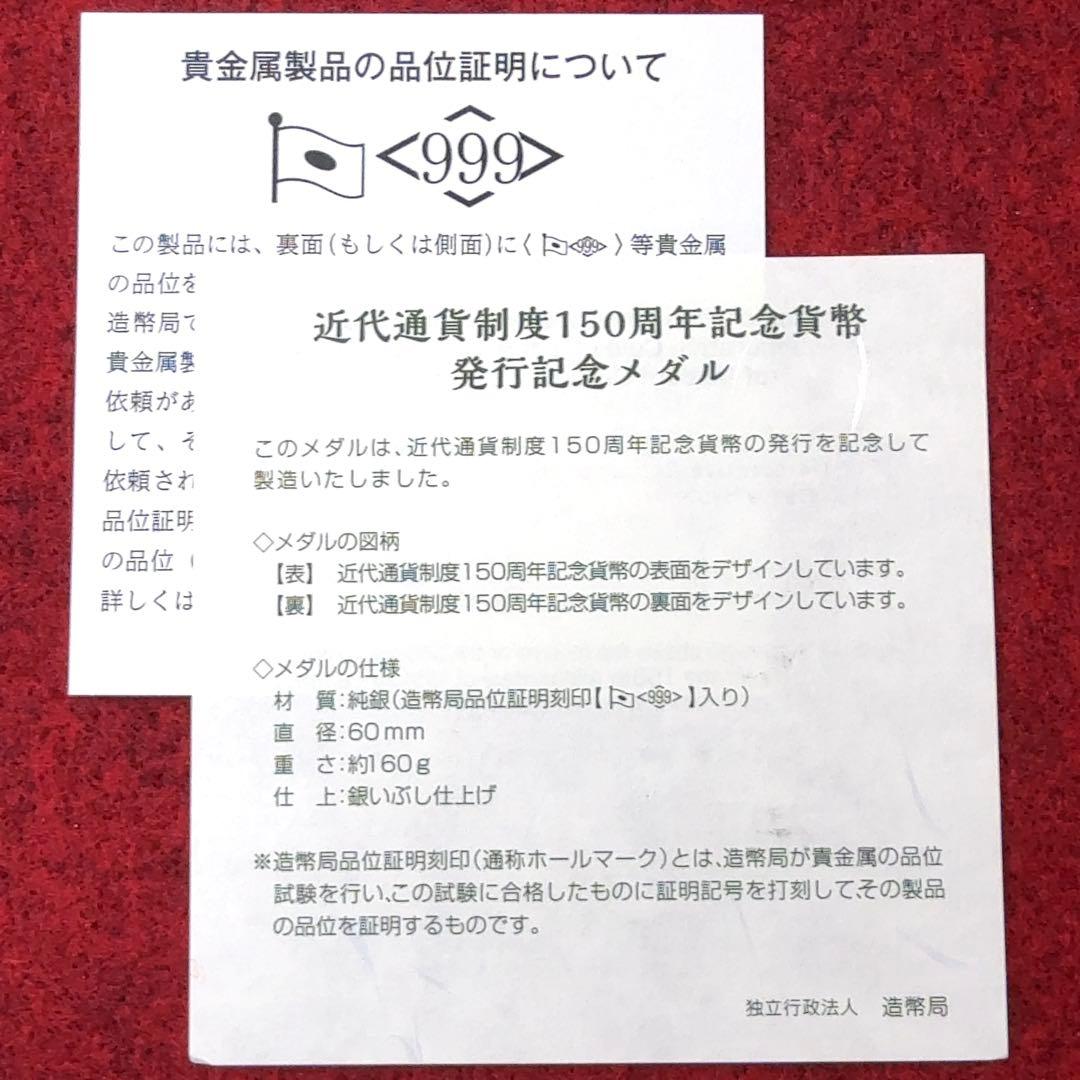 貴金属製品の品位証明について
<999>
この製品には、裏面(もしくは側面)に〈<999>〉等貴金属
の品位を
造幣局で
貴金属製
依頼があ
して、そ
依頼され
品位証明
の品位(
詳しくは
近代通貨制度150周年記念貨幣
発行記念メダル
このメダルは、近代通貨制度150周年記念貨幣の発行を記念して
製造いたしました。
◇メダルの図柄
【表】 近代通貨制度150周年記念貨幣の表面をデザインしています。
【裏】 近代通貨制度150周年記念貨幣の裏面をデザインしています。
◇メダルの仕様
材 質:純銀(造幣局品位証明刻印【<999>】入り)
直 径:60mm
重 さ:約160g
仕 上:銀いぶし仕上げ
※造幣局品位証明刻印(通称ホールマーク)とは、造幣局が貴金属の品位
試験を行い、この試験に合格したものに証明記号を打刻してその製品
の品位を証明するものです。
独立行政法人 造幣局